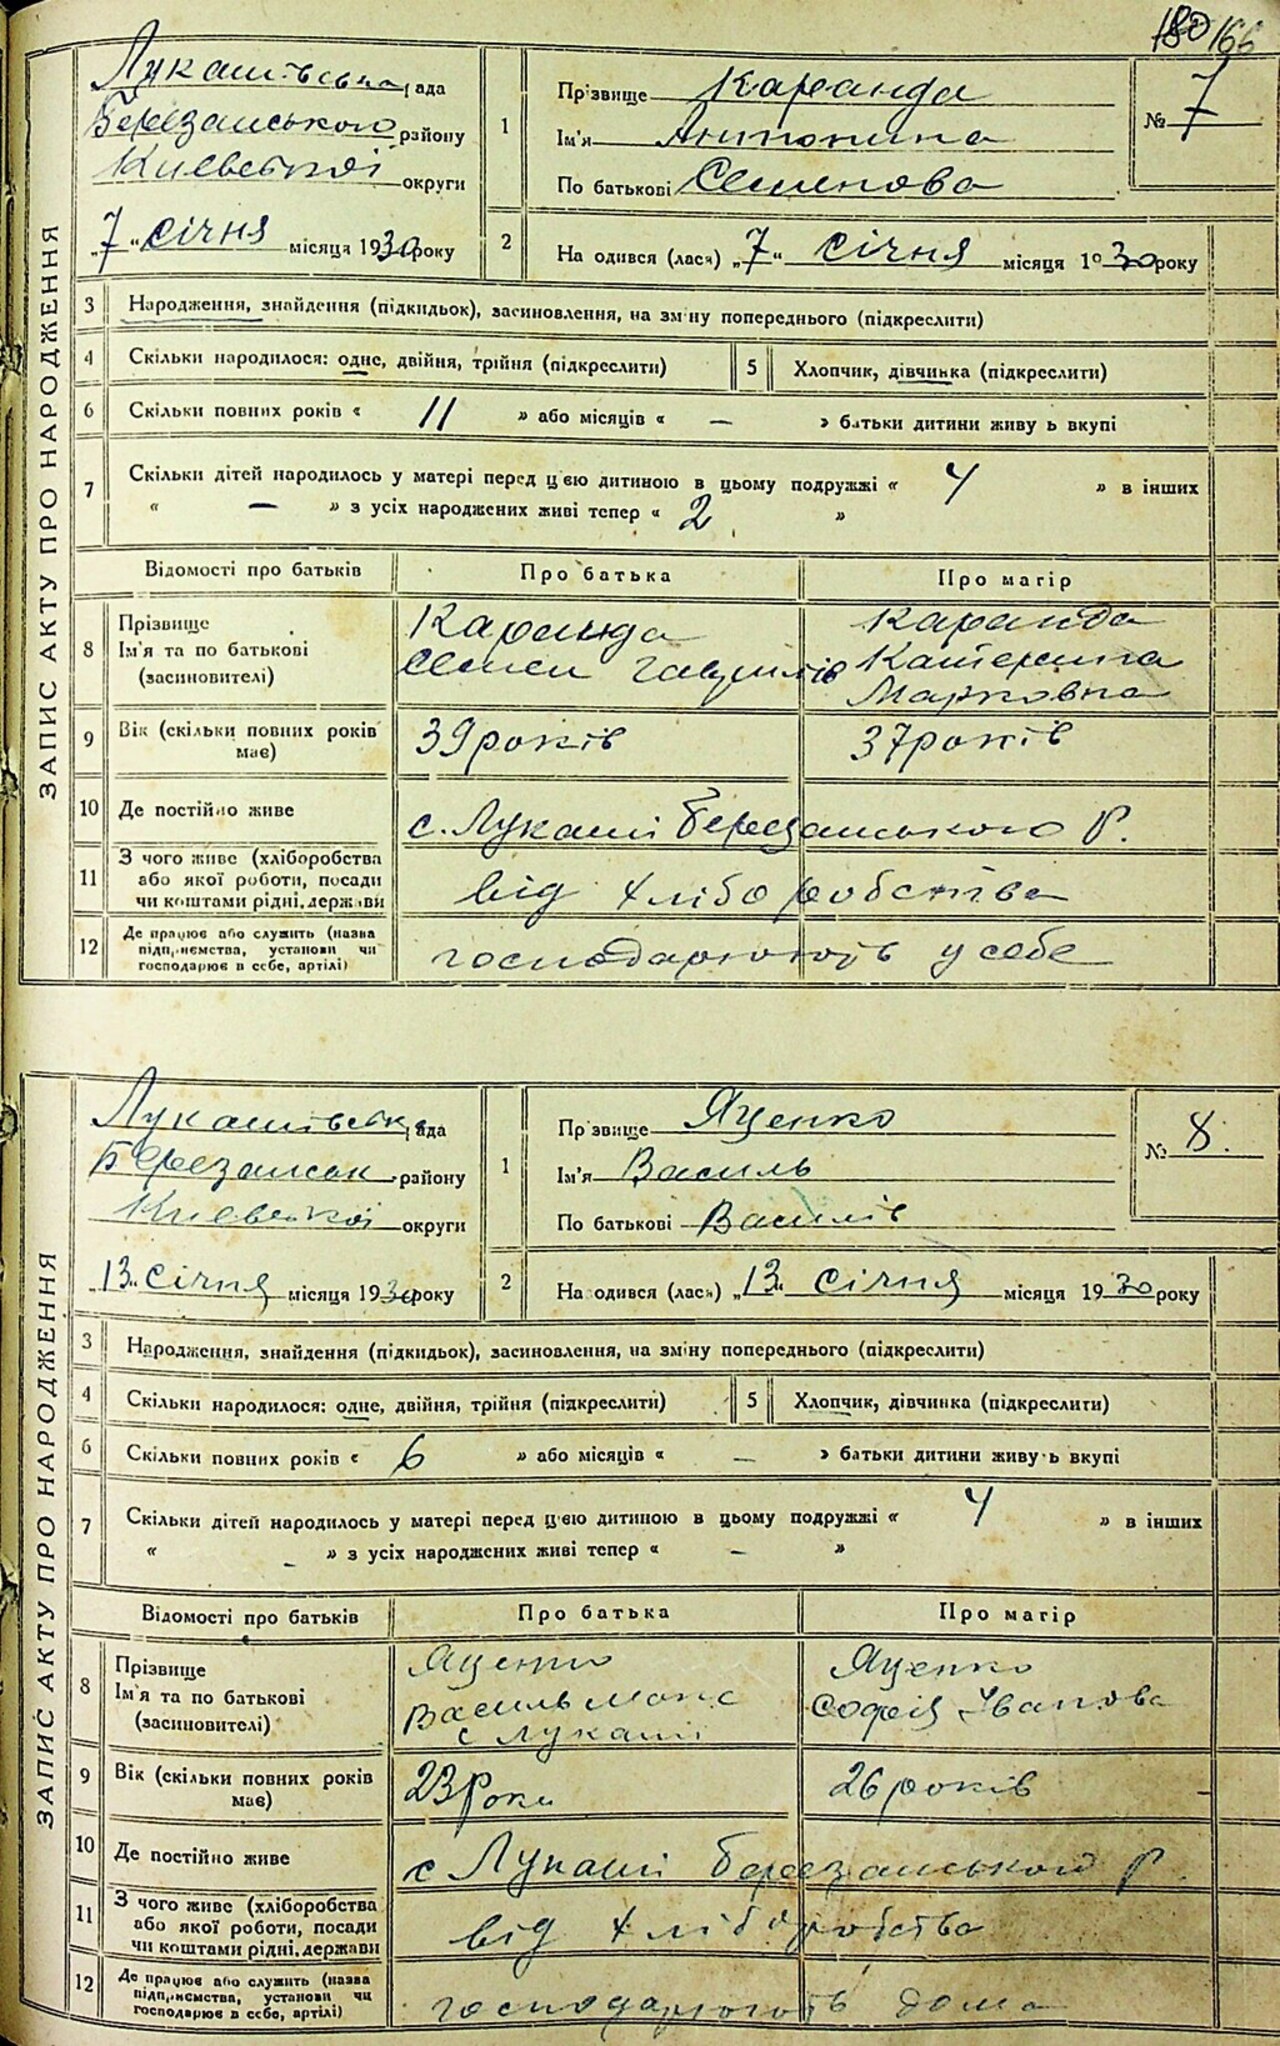 180 166
ЗАПИС АКТУ ПРО НАРОДЖЕННЯ
Лукашівська рада
Березанського району
Київської округи
„7“ січня місяця 1930 року
1
Прізвище Каранда
Ім'я Антонина
По батькові Семенова
№ 7
2
На одився (лася) „7“ січня місяця 1930 року
3 Народження, знайдення (підкидьок), засиновлення, на зміну попереднього (підкреслити)
4 Скільки народилося: одне, двійня, трійня (підкреслити)
5 Хлопчик, дівчинка (підкреслити)
6 Скільки повних років « 11 » або місяців « – » батьки дитини живуть вкупі
7 Скільки дітей народилось у матері перед цією дитиною в цьому подружжі « 4 » в інших
« – » з усіх народжених живі тепер « 2 »
Відомості про батьків Про батька Про матір
8 Прізвище
Ім'я та по батькові
(засиновителі)
Каранда
Семен
Каранда
Катерина
Марковна
9 Вік (скільки повних років
має)
39 років 37 років
10 Де постійно живе с. Лукаші Березанського Р.
11 З чого живе (хліборобства
або якої роботи, посади
чи коштами рідні, держави
від хліборобства
12 Де працює або служить (назва
підприємства, установи чи
господарює в себе, артілі)
господарюють у себе
ЗАПИС АКТУ ПРО НАРОДЖЕННЯ
Лукашівська рада
Березанськ району
Київської округи
„13“ січня місяця 1930 року
1
Прізвище Яценко
Ім'я Василь
По батькові Василів
№ 8.
2
На одився (лася) „13“ січня місяця 1930 року
3 Народження, знайдення (підкидьок), засиновлення, на зміну попереднього (підкреслити)
4 Скільки народилося: одне, двійня, трійня (підкреслити)
5 Хлопчик, дівчинка (підкреслити)
6 Скільки повних років « 6 » або місяців « – » батьки дитини живуть вкупі
7 Скільки дітей народилось у матері перед цією дитиною в цьому подружжі « 4 » в інших
« – » з усіх народжених живі тепер « – »
Відомості про батьків Про батька Про матір
8 Прізвище
Ім'я та по батькові
(засиновителі)
Яценко
Василь
с Лукаші
Яценко
Софія Іванова
9 Вік (скільки повних років
має)
23 Роки 26 років
10 Де постійно живе с Лукаші Березанського Р.
11 З чого живе (хліборобства
або якої роботи, посади
чи коштами рідні, держави
від хліборобства
12 Де працює або служить (назва
підприємства, установи чи
господарює в себе, артілі)
господарюють дома